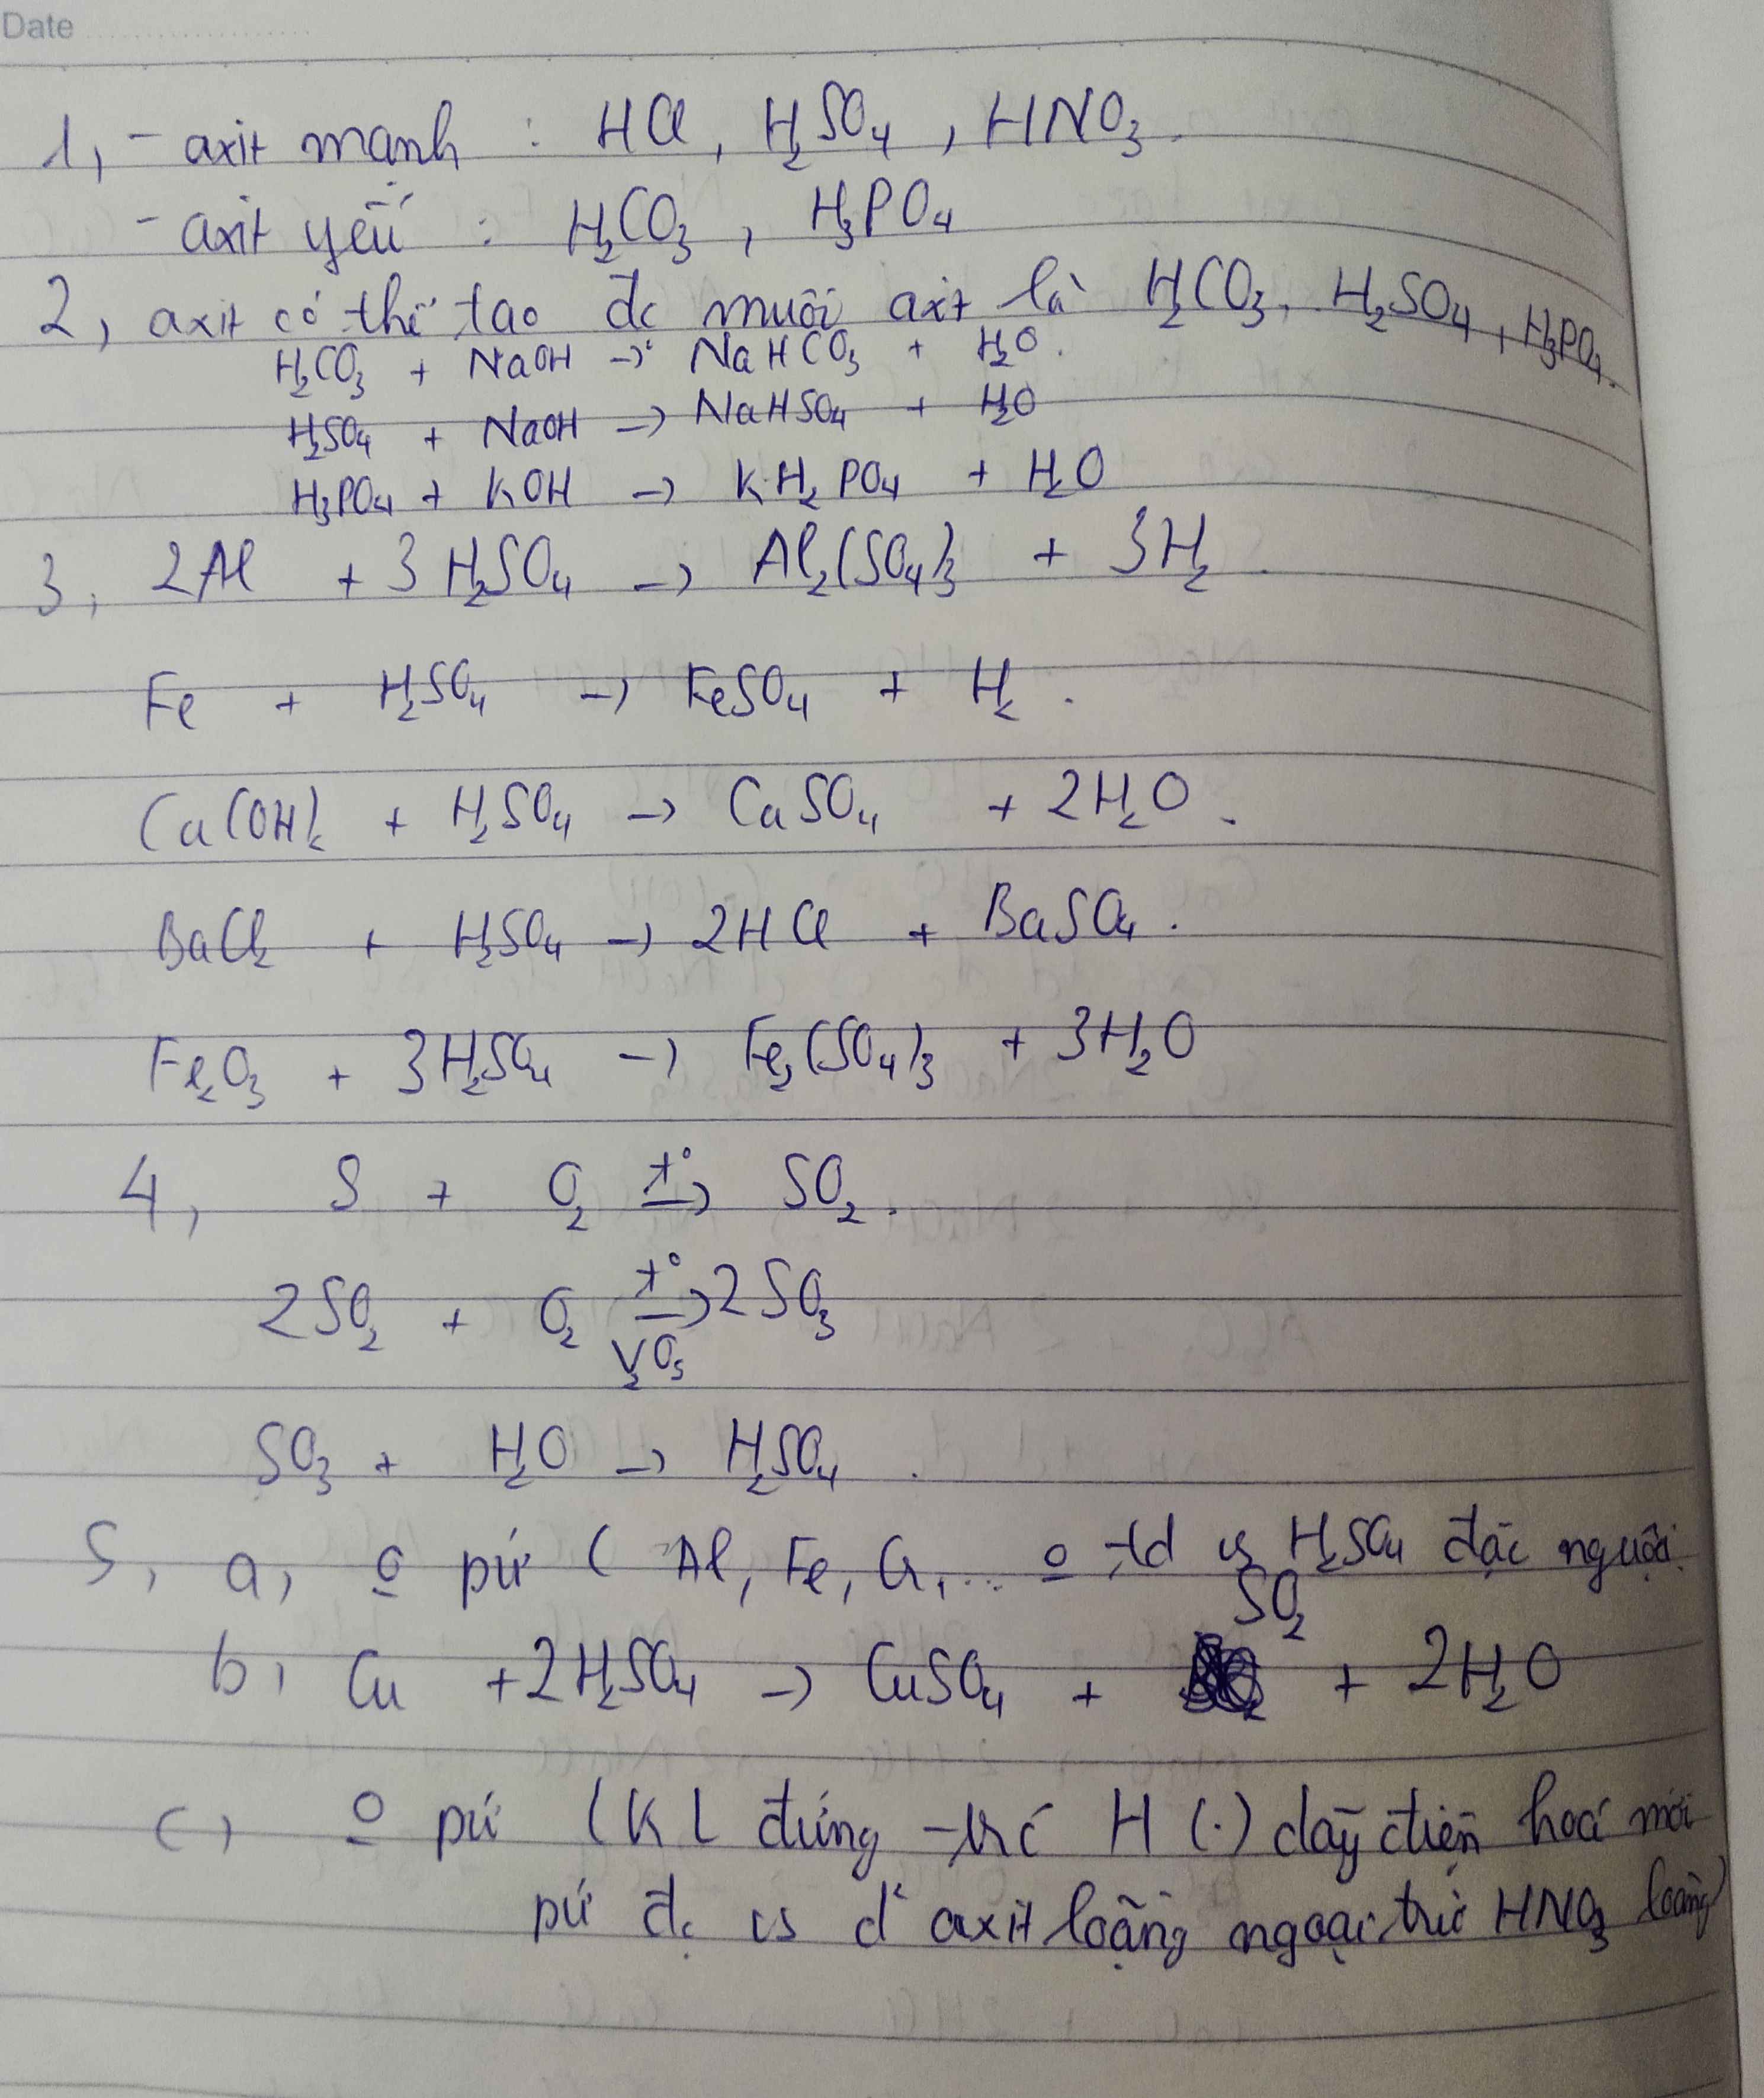 Date
1, - axit mạnh : HCl, H₂SO₄, HNO₃.
- axit yếu : H₂CO₃, H₃PO₄
2, axit có thể tạo đc muối axit là H₂CO₃, H₂SO₄, H₃PO₄.
H₂CO₃ + NaOH → NaHCO₃ + H₂O.
H₂SO₄ + NaOH → NaHSO₄ + H₂O
H₃PO₄ + KOH → KH₂PO₄ + H₂O
3, 2Al + 3H₂SO₄ → Al₂(SO₄)₃ + 3H₂.
Fe + H₂SO₄ → FeSO₄ + H₂.
Ca(OH)₂ + H₂SO₄ → CaSO₄ + 2H₂O.
BaCl₂ + H₂SO₄ → 2HCl + BaSO₄.
Fe₂O₃ + 3H₂SO₄ → Fe₂(SO₄)₃ + 3H₂O
4, S + O₂ t°→ SO₂.
2SO₂ + O₂ t°→ 2SO₃
V₂O₅
SO₃ + H₂O → H₂SO₄.
5, a, o pứ ( Al, Fe, Cr,... o td vs H₂SO₄ đặc nguội.
SO₂
b, Cu + 2H₂SO₄ → CuSO₄ + + 2H₂O
c, o pứ (KL đứng trc H (.) dãy điện hoá mới
pứ đc vs d² axit loãng ngoại trừ HNO₃ loãng)